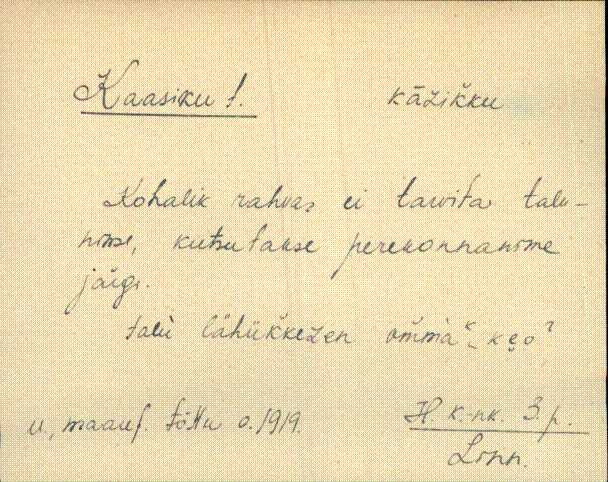 Kaasiku t. kāžikku
Kohalik rahvas ei tarvita talu-
nime, kutsutakse perekonnanime
järgi.
talu lähükkezen omma
u, maauf. tõttu o. 1919. H. k.-nk. 3. p.
Lonn.